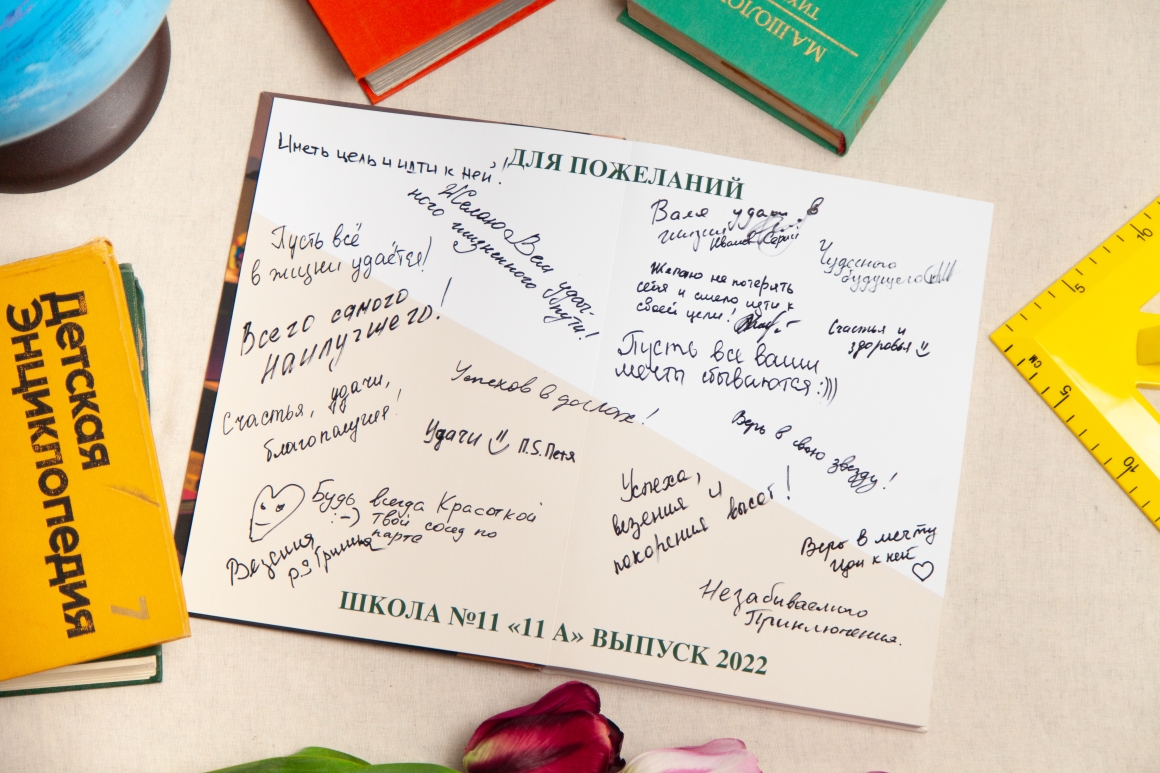 М.А.ШОЛОХ
ТИХ
Детская
Энциклопедия
7
ДЛЯ ПОЖЕЛАНИЙ
Иметь цель и идти к ней!
Желаю Вам удач-
ного жизненного пути!
Пусть всё
в жизни удаётся!
Всего самого
наилучшего!
Счастья, удачи,
благополучия!
Успехов в делах!
Удачи P.S. Петя
Будь всегда Красоткой
:-) твой сосед по
парте
Везения
Валя удачи в
жизни
Чудесного
будущего
Желаю не потерять
себя и смело идти к
своей цели!
Счастья и
здоровья
Пусть все ваши
мечты сбываются :)))
Верь в свою звезду!
Успеха,
везения и
покорения высот!
Верь в мечту
иди к ней
Незабываемого
Приключения.
ШКОЛА №11 «11 А» ВЫПУСК 2022
5
10
см
5
10